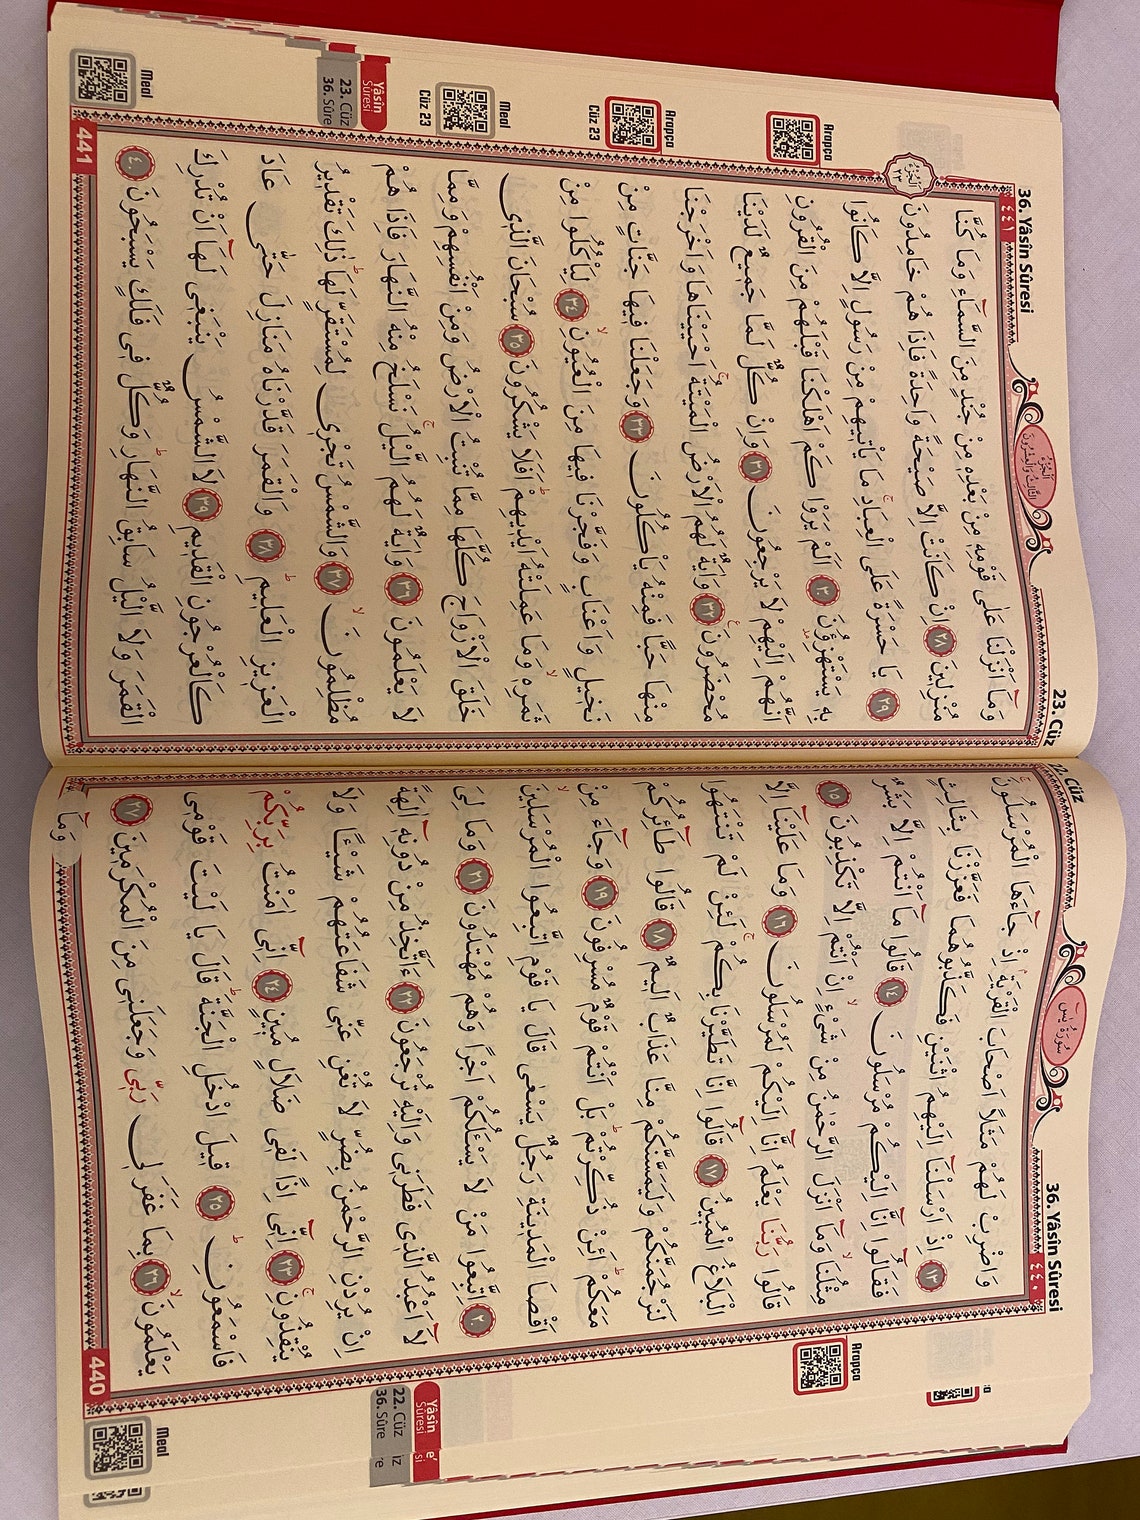 36. Yâsîn Sûresi
22. Cüz
٤٤٠
سُورَةُ يٰسٓ
وَاضْرِبْ لَهُمْ مَثَلًا اَصْحَابَ الْقَرْيَةِۢ اِذْ جَٓاءَهَا الْمُرْسَلُونَۚ
﴿١٣﴾ اِذْ اَرْسَلْنَٓا اِلَيْهِمُ اثْنَيْنِ فَكَذَّبُوهُمَا فَعَزَّزْنَا بِثَالِثٍ
فَقَالُٓوا اِنَّٓا اِلَيْكُمْ مُرْسَلُونَ ﴿١٤﴾ قَالُوا مَٓا اَنْتُمْ اِلَّا بَشَرٌ
مِثْلُنَاۙ وَمَٓا اَنْزَلَ الرَّحْمٰنُ مِنْ شَيْءٍۙ اِنْ اَنْتُمْ اِلَّا تَكْذِبُونَ ﴿١٥﴾
قَالُوا رَبُّنَا يَعْلَمُ اِنَّٓا اِلَيْكُمْ لَمُرْسَلُونَ ﴿١٦﴾ وَمَا عَلَيْنَٓا اِلَّا
الْبَلَاغُ الْمُبِينُ ﴿١٧﴾ قَالُٓوا اِنَّا تَطَيَّرْنَا بِكُمْۚ لَئِنْ لَمْ تَنْتَهُوا
لَنَرْجُمَنَّكُمْ وَلَيَمَسَّنَّكُمْ مِنَّا عَذَابٌ اَلِيمٌ ﴿١٨﴾ قَالُوا طَٓائِرُكُمْ
مَعَكُمْۜ اَئِنْ ذُكِّرْتُمْۜ بَلْ اَنْتُمْ قَوْمٌ مُسْرِفُونَ ﴿١٩﴾ وَجَٓاءَ مِنْ
اَقْصَا الْمَدِينَةِ رَجُلٌ يَسْعٰى قَالَ يَا قَوْمِ اتَّبِعُوا الْمُرْسَلِينَۙ
﴿٢٠﴾ اِتَّبِعُوا مَنْ لَا يَسْـَٔلُكُمْ اَجْرًا وَهُمْ مُهْتَدُونَ ﴿٢١﴾ وَمَا لِيَ
لَٓا اَعْبُدُ الَّذِي فَطَرَنِي وَاِلَيْهِ تُرْجَعُونَ ﴿٢٢﴾ ءَاَتَّخِذُ مِنْ دُونِهِٓ اٰلِهَةً
اِنْ يُرِدْنِ الرَّحْمٰنُ بِضُرٍّ لَا تُغْنِ عَنِّي شَفَاعَتُهُمْ شَيْـًٔا وَلَا
يُنْقِذُونِۚ ﴿٢٣﴾ اِنِّٓي اِذًا لَفِي ضَلَالٍ مُبِينٍ ﴿٢٤﴾ اِنِّٓي اٰمَنْتُ بِرَبِّكُمْ
فَاسْمَعُونِۜ ﴿٢٥﴾ قِيلَ ادْخُلِ الْجَنَّةَۜ قَالَ يَا لَيْتَ قَوْمِي
يَعْلَمُونَۙ ﴿٢٦﴾ بِمَا غَفَرَ لِي رَبِّي وَجَعَلَنِي مِنَ الْمُكْرَمِينَ ﴿٢٧﴾
وَمَٓا
440
Arapça
Yâsîn
Sûresi
22. Cüz
36. Sûre
Meal
36. Yâsîn Sûresi
23. Cüz
٤٤١
اَلْجُزْءُ الثَّالِثُ وَالْعِشْرُونَ
وَمَٓا اَنْزَلْنَا عَلٰى قَوْمِهِ مِنْ بَعْدِهِ مِنْ جُنْدٍ مِنَ السَّمَٓاءِ وَمَا كُنَّا
مُنْزِلِينَ ﴿٢٨﴾ اِنْ كَانَتْ اِلَّا صَيْحَةً وَاحِدَةً فَاِذَا هُمْ خَامِدُونَ
﴿٢٩﴾ يَا حَسْرَةً عَلَى الْعِبَادِۚ مَا يَأْتِيهِمْ مِنْ رَسُولٍ اِلَّا كَانُوا
بِهِ يَسْتَهْزِؤُ۫نَ ﴿٣٠﴾ اَلَمْ يَرَوْا كَمْ اَهْلَكْنَا قَبْلَهُمْ مِنَ الْقُرُونِ
اَنَّهُمْ اِلَيْهِمْ لَا يَرْجِعُونَ ﴿٣١﴾ وَاِنْ كُلٌّ لَمَّا جَمِيعٌ لَدَيْنَا
مُحْضَرُونَ۟ ﴿٣٢﴾ وَاٰيَةٌ لَهُمُ الْاَرْضُ الْمَيْتَةُۚ اَحْيَيْنَاهَا وَاَخْرَجْنَا
مِنْهَا حَبًّا فَمِنْهُ يَأْكُلُونَ ﴿٣٣﴾ وَجَعَلْنَا فِيهَا جَنَّاتٍ مِنْ
نَخِيلٍ وَاَعْنَابٍ وَفَجَّرْنَا فِيهَا مِنَ الْعُيُونِۙ ﴿٣٤﴾ لِيَأْكُلُوا مِنْ
ثَمَرِهِۙ وَمَا عَمِلَتْهُ اَيْدِيهِمْۜ اَفَلَا يَشْكُرُونَ ﴿٣٥﴾ سُبْحَانَ الَّذِي
خَلَقَ الْاَزْوَاجَ كُلَّهَا مِمَّا تُنْبِتُ الْاَرْضُ وَمِنْ اَنْفُسِهِمْ وَمِمَّا
لَا يَعْلَمُونَ ﴿٣٦﴾ وَاٰيَةٌ لَهُمُ الَّيْلُۚ نَسْلَخُ مِنْهُ النَّهَارَ فَاِذَا هُمْ
مُظْلِمُونَۙ ﴿٣٧﴾ وَالشَّمْسُ تَجْرِي لِمُسْتَقَرٍّ لَهَاۜ ذٰلِكَ تَقْدِيرُ
الْعَزِيزِ الْعَلِيمِۜ ﴿٣٨﴾ وَالْقَمَرَ قَدَّرْنَاهُ مَنَازِلَ حَتّٰى عَادَ
كَالْعُرْجُونِ الْقَدِيمِ ﴿٣٩﴾ لَا الشَّمْسُ يَنْبَغِي لَهَٓا اَنْ تُدْرِكَ
الْقَمَرَ وَلَا الَّيْلُ سَابِقُ النَّهَارِۜ وَكُلٌّ فِي فَلَكٍ يَسْبَحُونَ ﴿٤٠﴾
441
اَلْجُزْءُ ٢٣
Arapça
Arapça
Cüz 23
Meal
Cüz 23
Yâsîn
Sûresi
23. Cüz
36. Sûre
Meal